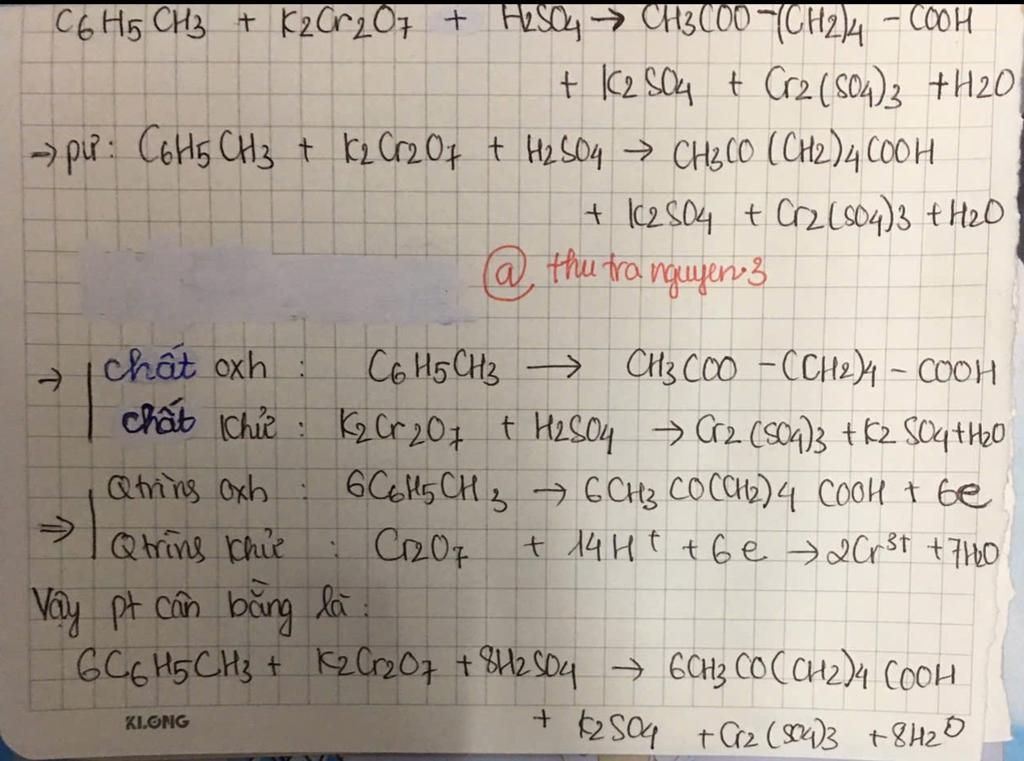 C6H5CH3 + K2Cr2O7 + H2SO4 → CH3COO-(CH2)4 - COOH
+ K2SO4 + Cr2(SO4)3 + H2O
→ pư: C6H5CH3 + K2Cr2O7 + H2SO4 → CH3CO(CH2)4COOH
+ K2SO4 + Cr2(SO4)3 + H2O
@ thutranguyen3
→ chất oxh : C6H5CH3 → CH3COO -(CH2)4 - COOH
chất khử : K2Cr2O7 + H2SO4 → Cr2(SO4)3 + K2SO4 + H2O
⇒ Qtrìng oxh : 6C6H5CH3 → 6CH3CO(CH2)4 COOH + 6e
Qtrìng khử : Cr2O7 + 14H+ + 6e → 2Cr3+ + 7H2O
Vậy pt cân bằng là:
6C6H5CH3 + K2Cr2O7 + 8H2SO4 → 6CH3CO(CH2)4 COOH
+ K2SO4 + Cr2(SO4)3 + 8H2O
KLONG